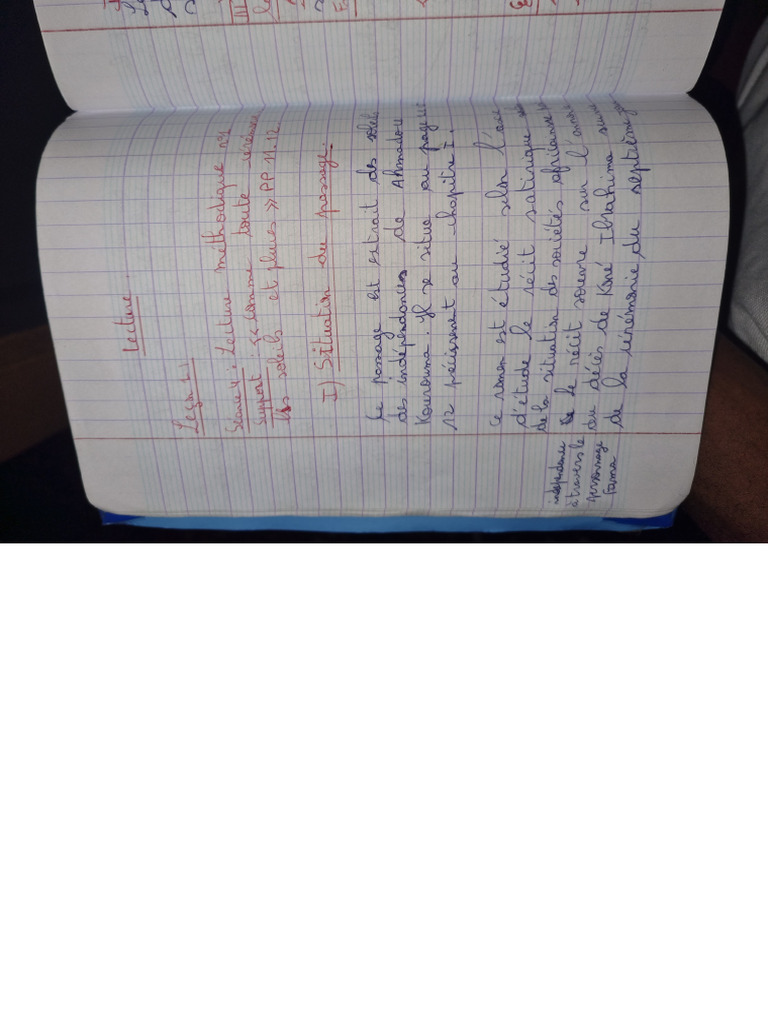 Lecture.
Leçon 1
Séance 4 : Lecture méthodique n°1
Support : « comme toute cérémonie
les soleils et pluies » PP 11.12.
I) Situation du passage.
Le passage est extrait des soleils
des indépendances de Ahmadou
Kourouma. Il se situe au page 11
12 précisement au chapitre I.
Ce roman est étudié selon l'axe
d'étude le récit satirique
de la situation des sociétés africaines
indépendance
à travers le
personnage
Fama
le récit s'ouvre sur l'annonce
du décès de Koné Ibrahima
de la cérémonie du septième